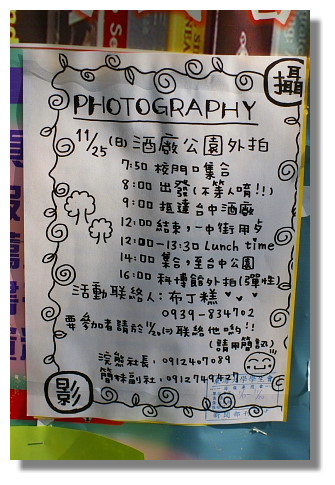 攝
PHOTOGRAPHY
11/25 (日) 酒廠公園外拍
7:50 校門口集合
8:00 出發(不等人唷!!)
9:00 抵達台中酒廠
12:00 結束,一中街用歺
12:00-13:30 Lunch time
14:00 集合,至台中公園
16:00 科博館外拍(彈性)
活動聯絡人:布丁糕
0939-834702
要參加者請於11/20(二)聯絡他喲!!
(請用簡訊)
浣熊社長,0912407089
簡妹副社,0912749427
影